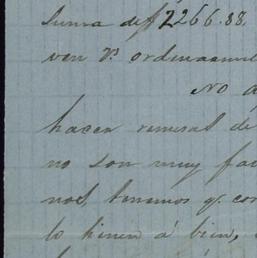 suma de $2266.38.
ven Vs. ordenarme
No
hacer remesas de
no son muy fac
nos, tenemos q. con
lo tienen á bien,